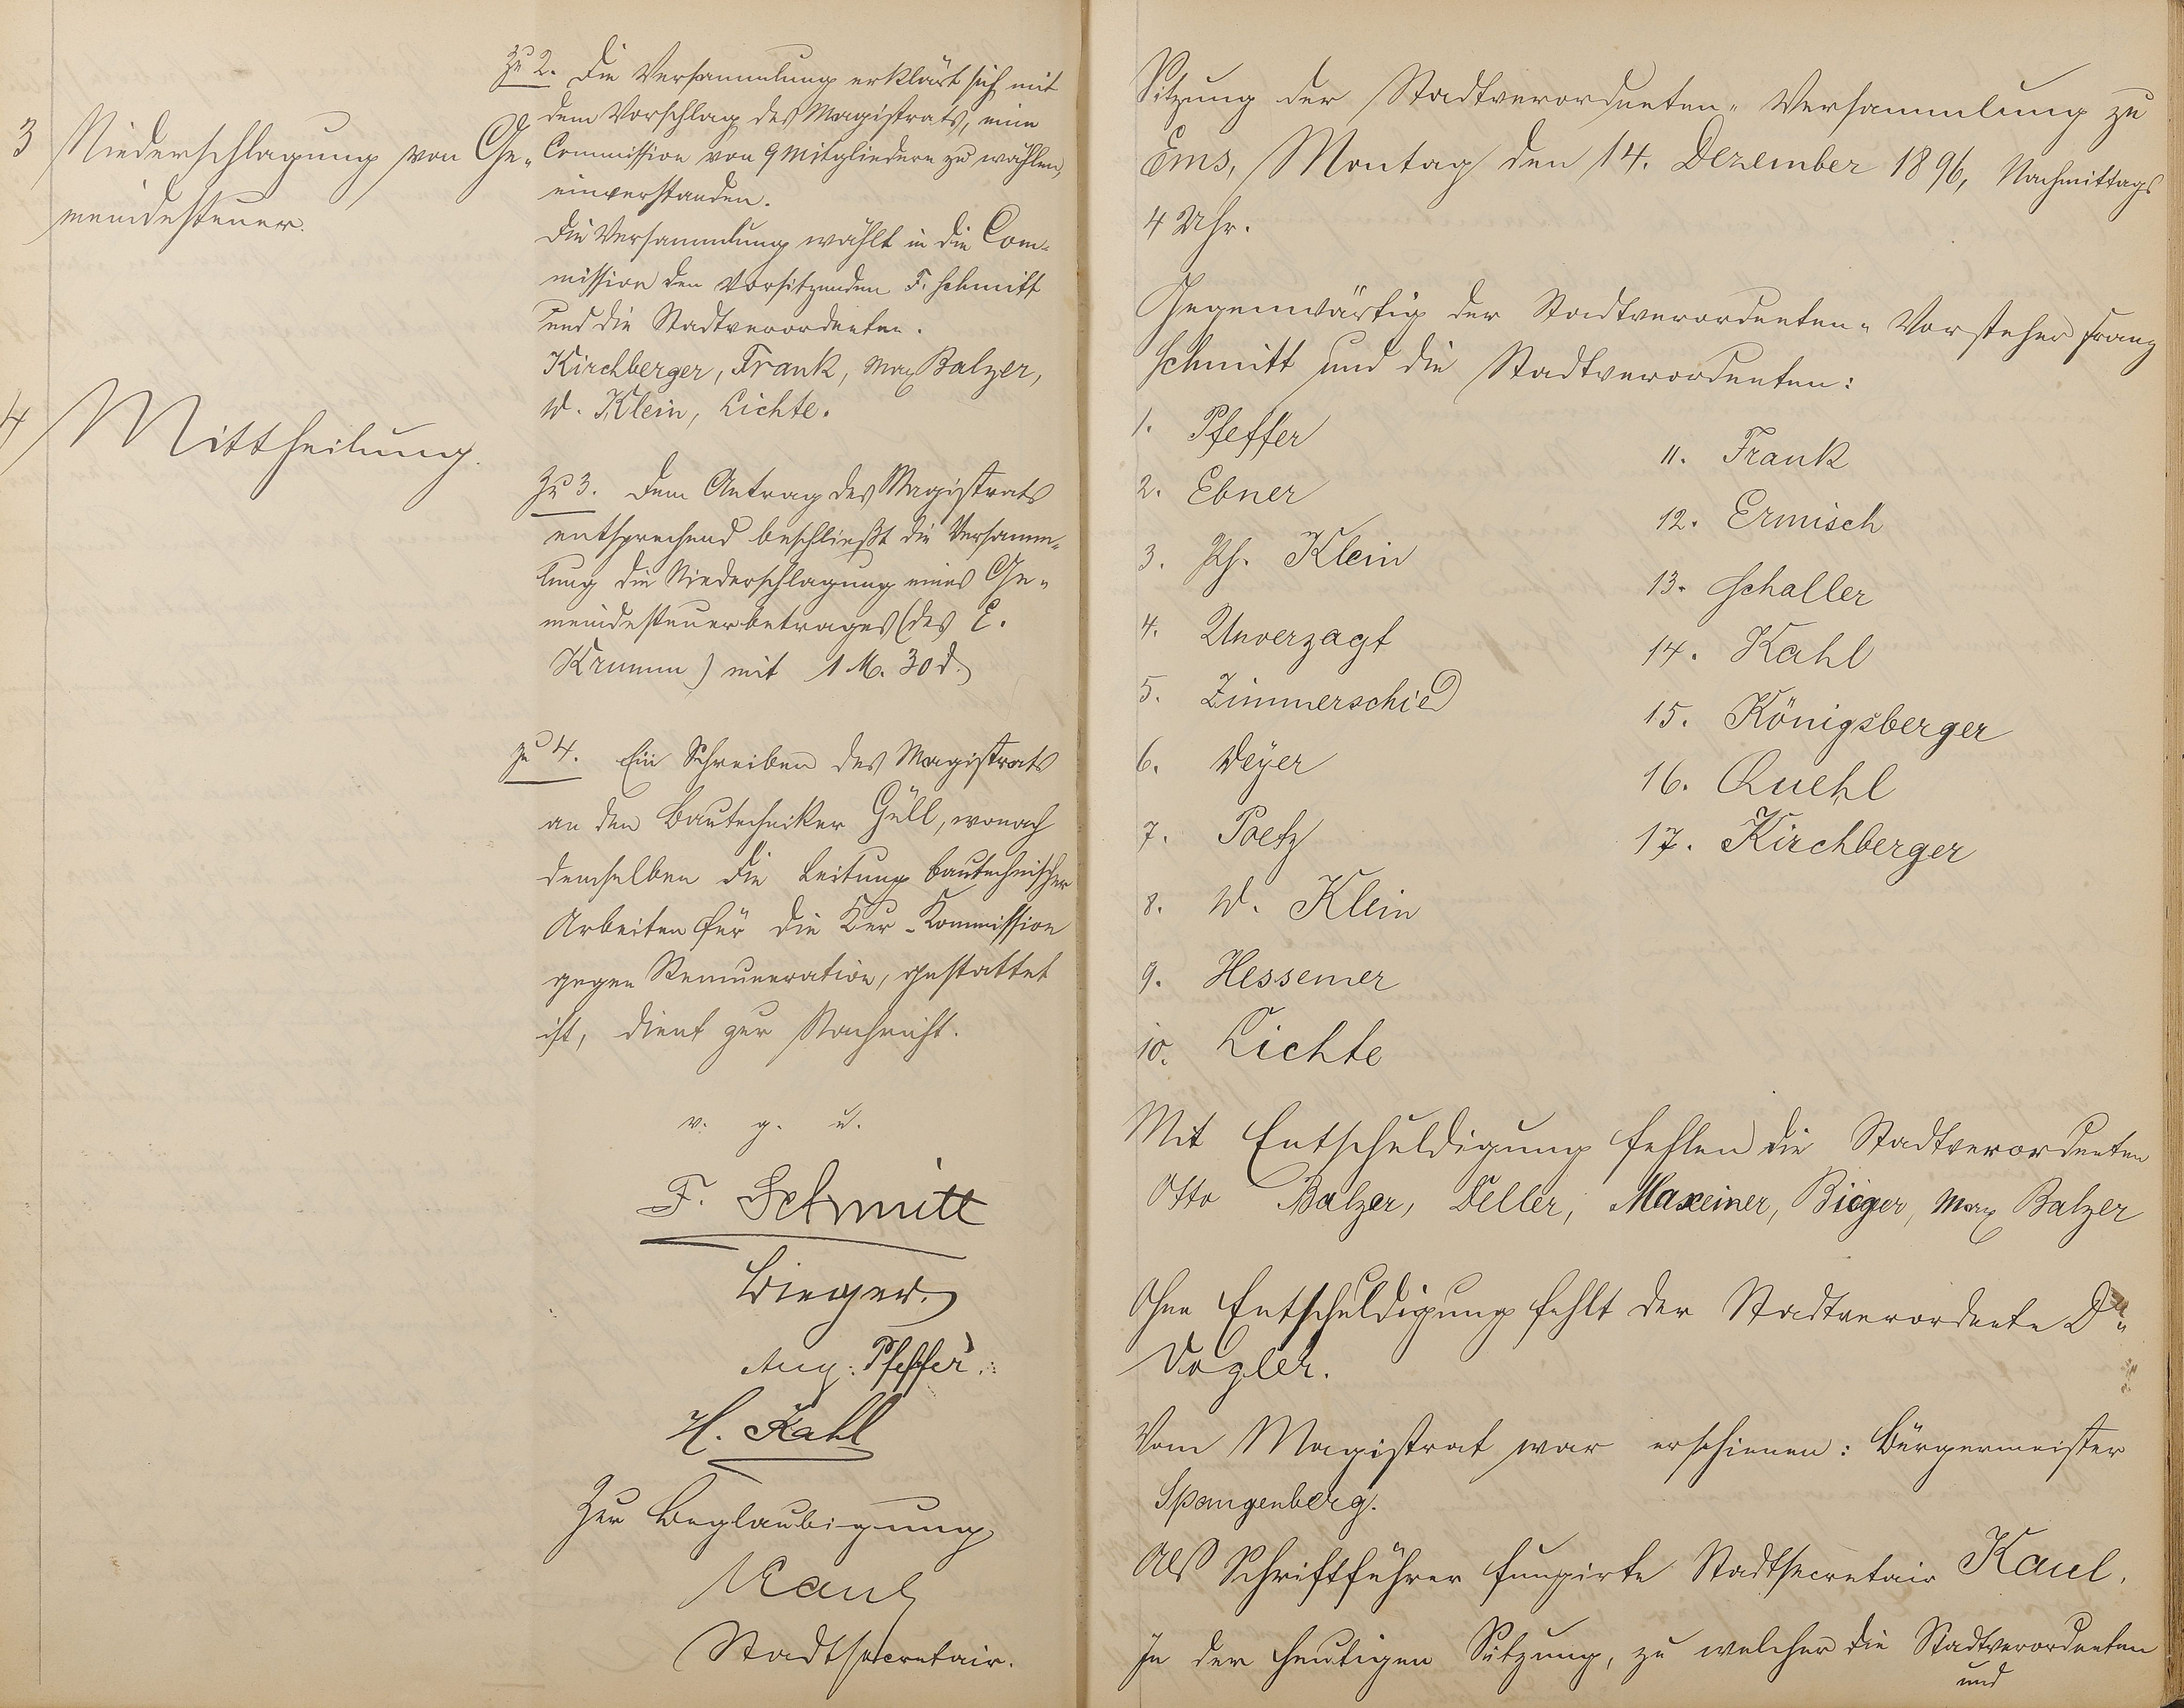 3 Niederschlagung von Ge-
meindesteuer.
4 Mittheilung.
Zu 2. Die Versammlung erklärt sich mit
dem Vorschlag des Magistrats, eine
Commission von 9 Mitgliedern zu wählen,
einverstanden.
Die Versammlung wählt in die Com-
mission den Vorsitzenden F. Schmitt
und die Stadtverordneten.
Kirchberger, Frank, Max Balzer,
W. Klein, Lichte.
Zu 3. Dem Antrag des Magistrats
entsprechend beschließt die Versamm-
lung die Niederschlagung eines Ge-
meindesteuerbetrages (des E.
Krumm) mit 1 M. 30 d.
zu 4. Ein Schreiben des Magistrats
an den Bautechniker Güll, wonach
demselben die Leitung bautechnischer
Arbeiten für die Kur-Kommission
gegen Remuneration, gestattet
ist, dient zur Nachricht.
v. g. u.
F. Schmitt
Bieger.
Aug: Pfeffer.
H. Kahl
Zur Beglaubigung
Kaul
Stadtsecretair.
Sitzung der Stadtverordneten-Versammlung zu
Ems, Montag den 14. Dezember 1896, Nachmittags
4 Uhr.
Gegenwärtig der Stadtverordneten-Vorsteher Franz
Schmitt und die Stadtverordneten:
1. Pfeffer
2. Ebner
3. Ph. Klein
4. Unverzagt
5. Zimmerschied
6. Weyer
7. Poetz
8. W. Klein
9. Hessemer
10. Lichte
11. Frank
12. Ermisch
13. Schaller
14. Kahl
15. Königsberger
16. Quehl
17. Kirchberger
Mit Entschuldigung fehlen die Stadtverordneten
Otto Balzer, Deller, Maxeiner, Bieger, Max Balzer
Ohne Entschuldigung fehlt der Stadtverordnete Dr.
Vogler.
Vom Magistrat war erschienen: Bürgermeister
Spangenberg.
Als Schriftführer fungirte Stadtsecretair Kaul.
In der heutigen Sitzung, zu welcher die Stadtverordneten
und